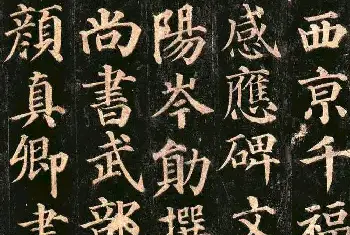 西京千福
感應碑文
陽岑勛撰
尚書武部
顏真卿書